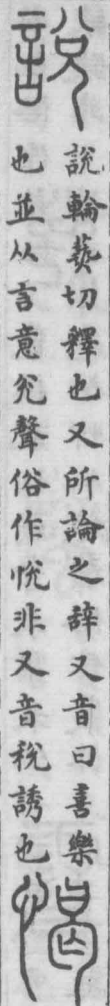 說
說輪蓺切釋也又所論之辭又音曰喜樂
也並从言意兊聲俗作悅非又音稅誘也